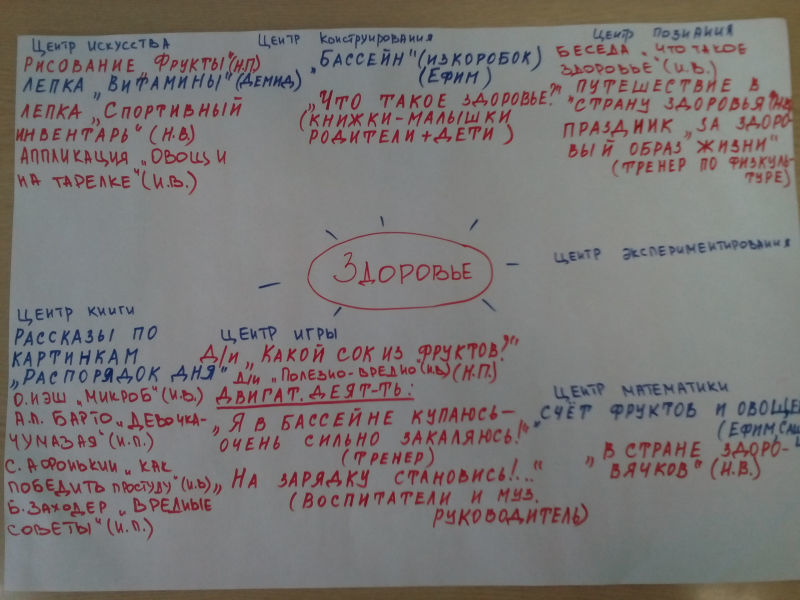 Центр искусства
Рисование „Фрукты" (Н.П.)
Лепка „Витамины" (Демид)
Лепка „Спортивный
инвентарь" (Н.В.)
Аппликация „Овощи
на тарелке" (И.В.)
Центр конструирования
„Бассейн" (из коробок)
(Ефим)
„Что такое здоровье?"
(книжки-малышки
родители + дети)
Центр познания
Беседа „Что такое
здоровье" (И.В.)
Путешествие в
"Страну здоровья"
Праздник „За здоро-
вый образ жизни"
(тренер по физкуль-
туре)
Здоровье
Центр экспериментирования
Центр книги
Рассказы по
картинкам
„Распорядок дня"
О. Иэш „Микроб" (И.В.)
А.Л. Барто „Девочка-
чумазая" (И.П.)
С. Афонькин „Как
победить простуду" (И.В.)
Б. Заходер „Вредные
советы" (И.П.)
Центр игры
Д/и „Какой сок из фруктов?"
Д/и „Полезно-вредно" (И.В.) (Н.П.)
Двигат. деят-ть:
„Я в бассейне купаюсь –
очень сильно закаляюсь!"
(тренер)
„На зарядку становись!..."
(воспитатели и муз.
руководитель)
Центр математики
"Счёт фруктов и овощей
(Ефим, Саш
„В стране здоро-
вячков" (Н.В.)